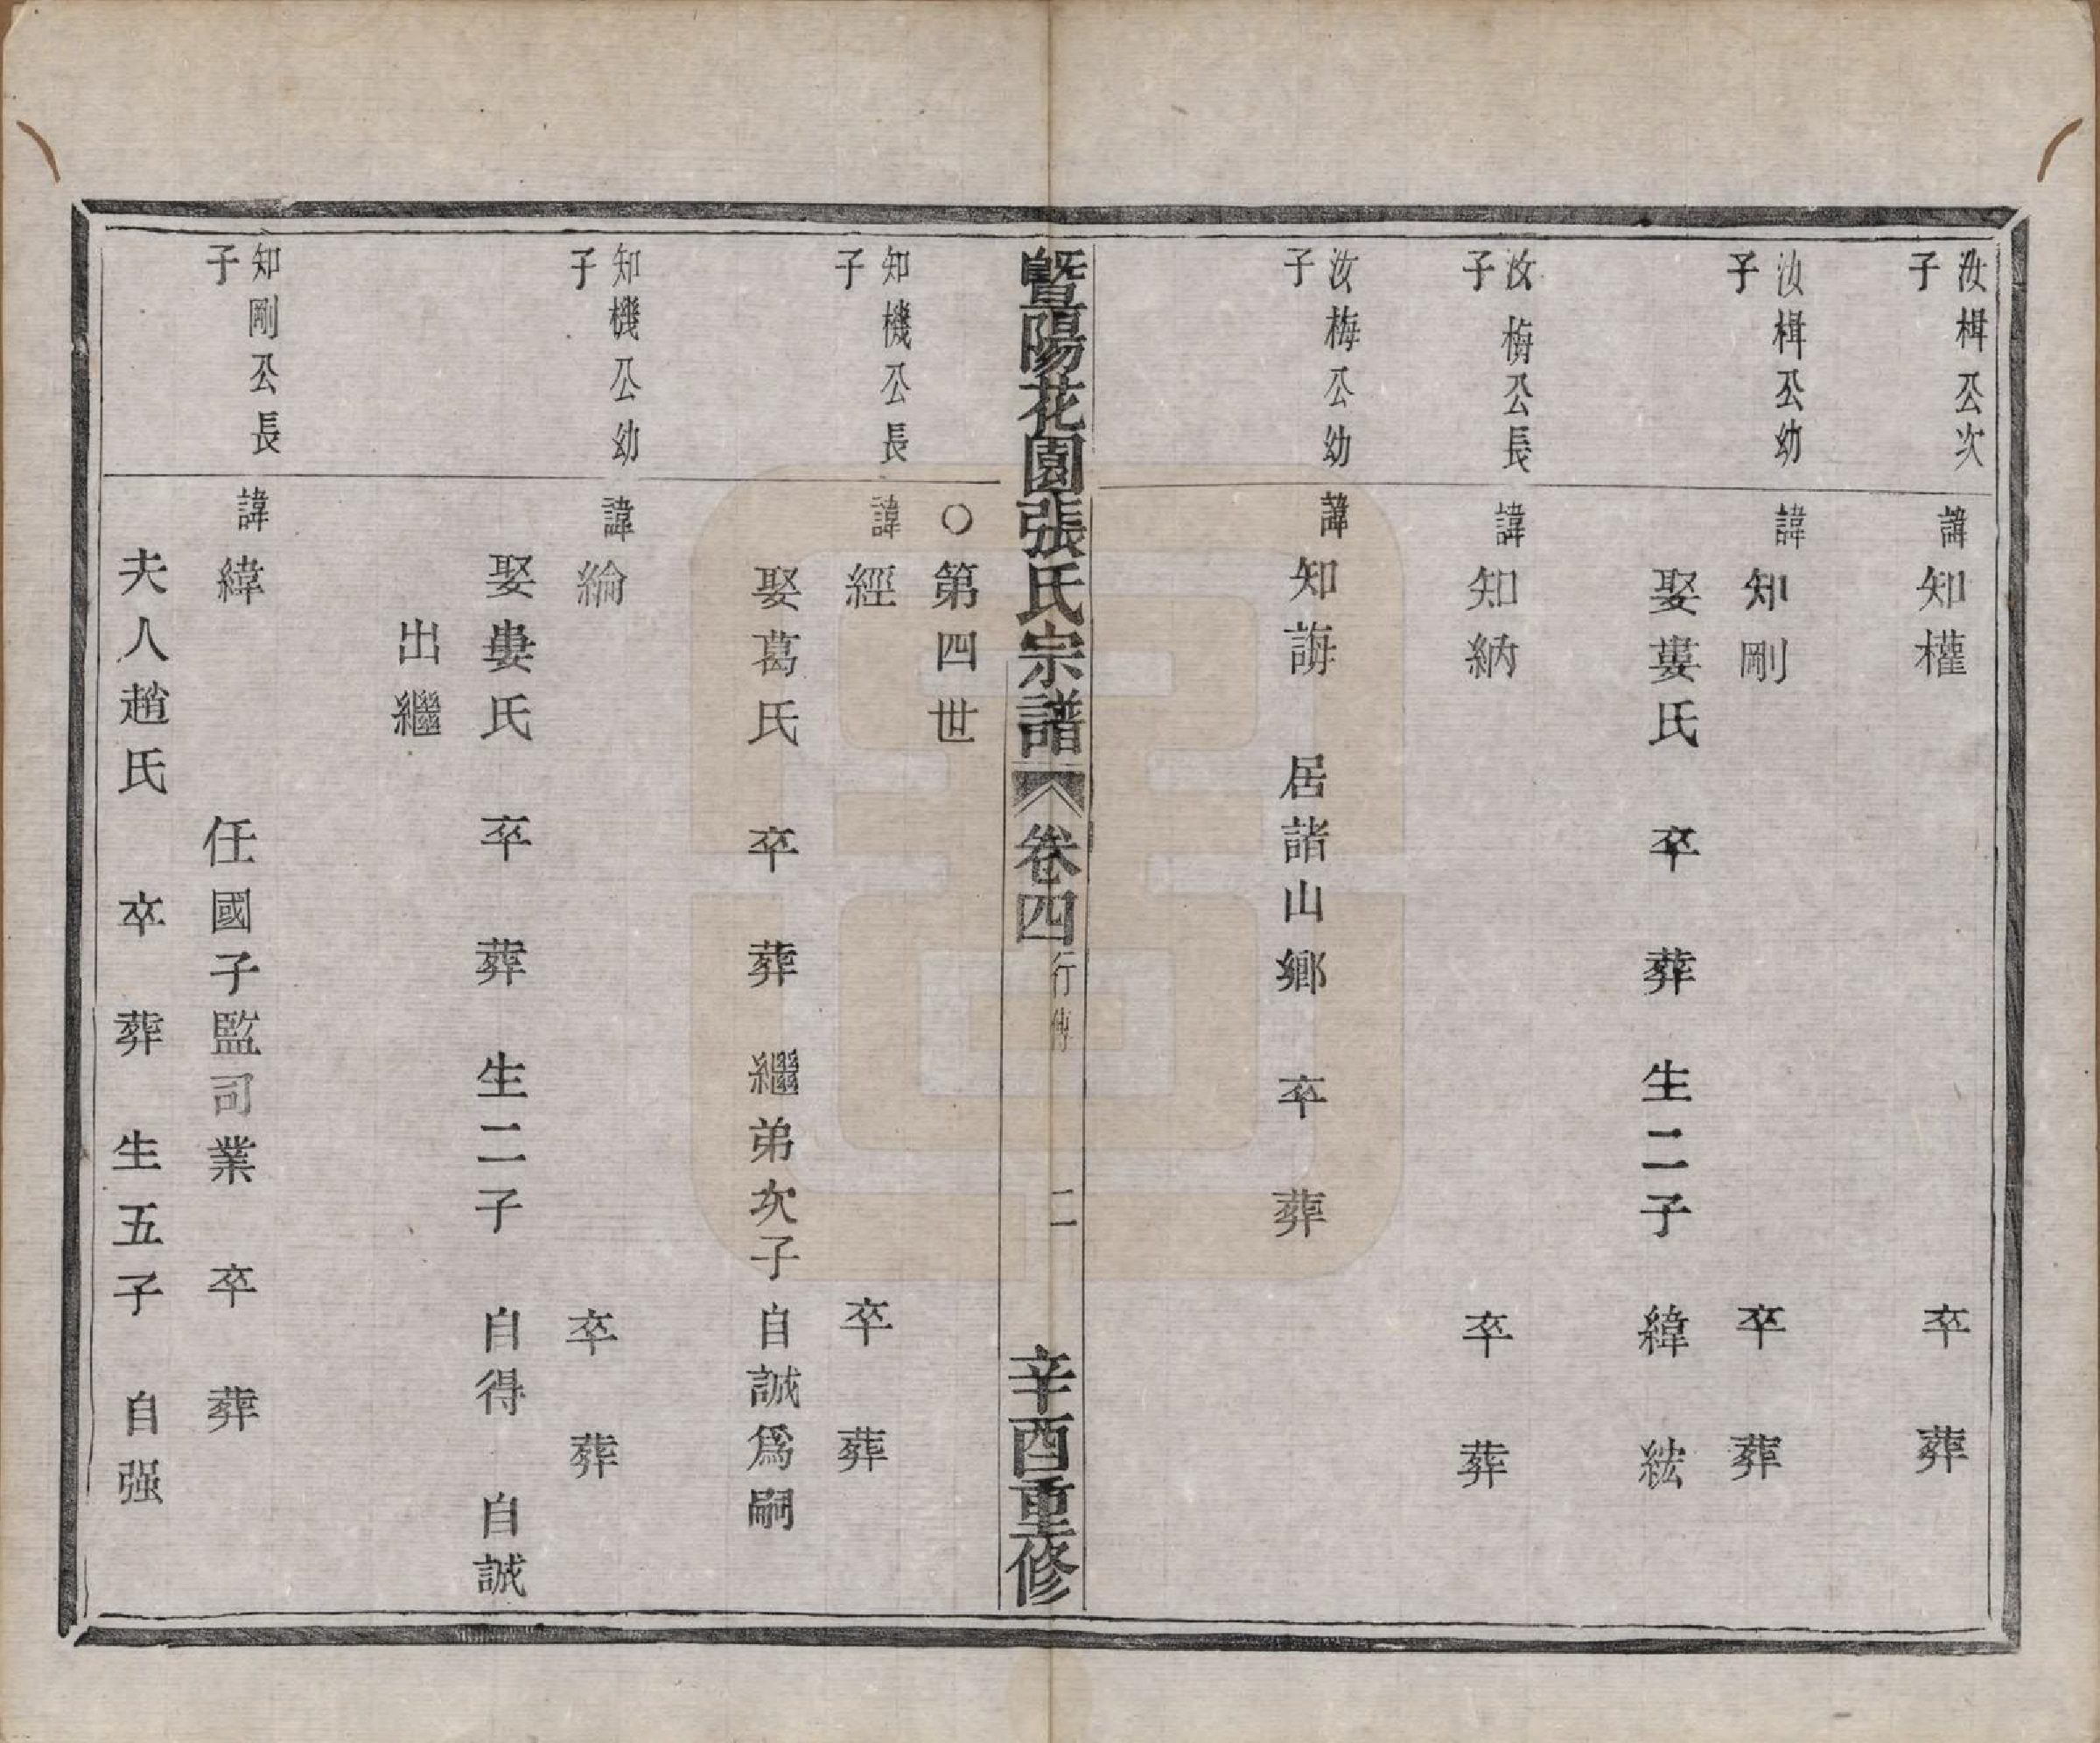 汝楫公次子
諱知權　卒　葬
汝楫公幼子
諱知剛　卒　葬
娶婁氏　卒　葬　生二子　緯　紘
汝梅公長子
諱知納　卒　葬
汝梅公幼子
諱知誨　居諸山鄉　卒　葬
暨陽花園張氏宗譜　卷四　行傳　二　辛酉重修
○第四世
知機公長子
諱經　卒　葬
娶葛氏　卒　葬　繼弟次子自誠爲嗣
知機公幼子
諱綸　卒　葬
娶婁氏　卒　葬　生二子　自得　自誠
出繼
知剛公長子
諱緯　任國子監司業　卒　葬
夫人趙氏　卒　葬　生五子　自强